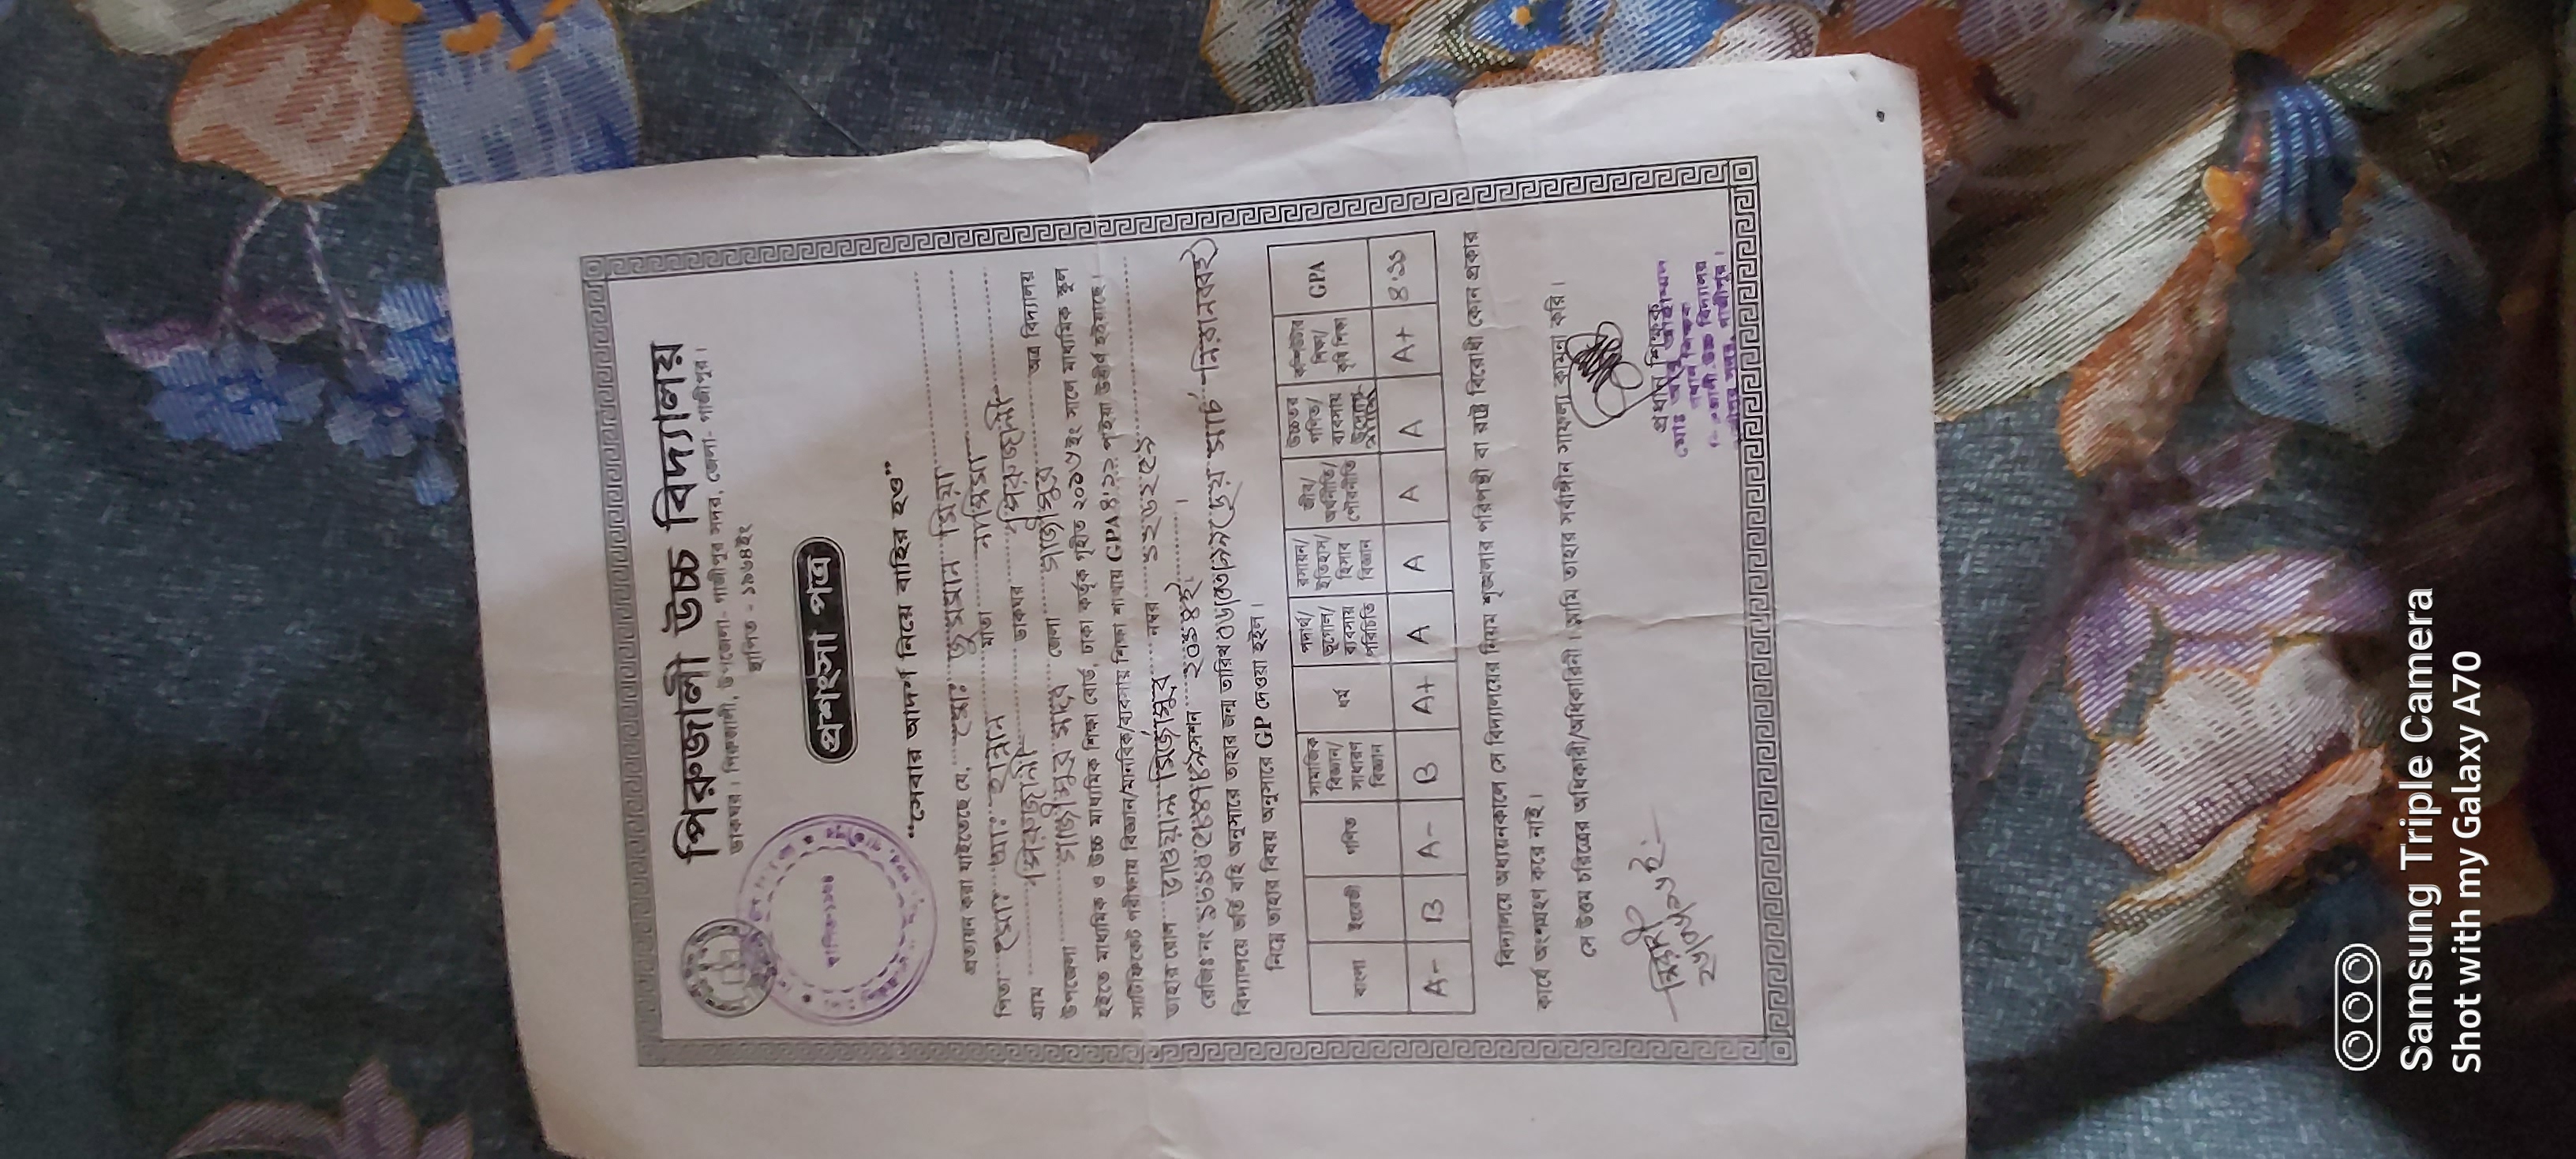 পিরুজালী উচ্চ বিদ্যালয়
ডাকঘর। পিরুজালী, উপজেলা- গাজীপুর সদর, জেলা- গাজীপুর।
স্থাপিত - ১৯৬৪ইং
স্থাপিত-১৯৬৪
প্রশংসা পত্র
“সেবার আদর্শ নিয়ে বাহির হও”
প্রত্যয়ন করা যাইতেছে যে, মোঃ জুমমান মিয়া
পিতা মোঃ আঃ হান্নান মাতা নাসিমা
গ্রাম পিরুজালী ডাকঘর পিরুজালী
উপজেলা গাজীপুর সদর জেলা গাজীপুর অত্র বিদ্যালয়
হইতে মাধ্যমিক ও উচ্চ মাধ্যমিক শিক্ষা বোর্ড, ঢাকা কর্তৃক গৃহীত ২০১৬ইং সালে মাধ্যমিক স্কুল
সার্টিফিকেট পরীক্ষায় বিজ্ঞান/মানবিক/ব্যবসায় শিক্ষা শাখায় GPA ৪.১১ পাইয়া উত্তীর্ণ হইয়াছে।
তাহার রোল ভাওয়াল মির্জাপুর নম্বর ১২৬২৫৯
রেজিঃ নং সেশন ২০১৪ইং।
বিদ্যালয়ে ভর্তি বহি অনুসারে তাহার জন্ম তারিখ ০৬/০৩/৯৯ (ছয় মার্চ নিরানব্বই)
নিম্নে তাহার বিষয় অনুসারে GP দেওয়া হইল।
বাংলা ইংরেজী গণিত সামাজিক বিজ্ঞান/সাধারণ বিজ্ঞান ধর্ম পদার্থ/ভূগোল/ব্যবসায় পরিচিতি রসায়ন/ইতিহাস/হিসাব বিজ্ঞান জীব/অর্থনীতি/পৌরনীতি উচ্চতর গণিত/ব্যবসায় উদ্যোগ কম্পিউটার শিক্ষা/কৃষি শিক্ষা GPA
A- B A- B A+ A A A A A+ ৪.১১
বিদ্যালয়ে অধ্যয়নকালে সে বিদ্যালয়ের নিয়ম শৃঙ্খলার পরিপন্থী বা রাষ্ট্র বিরোধী কোন প্রকার
কার্যে অংশগ্রহণ করে নাই।
সে উত্তম চরিত্রের অধিকারী/অধিকারিনী। আমি তাহার সর্বাঙ্গীন সাফল্য কামনা করি।
প্রধান শিক্ষক
মোঃ আবু
প্রধান শিক্ষক
উচ্চ বিদ্যালয়
গাজীপুর সদর, গাজীপুর।
Samsung Triple Camera
Shot with my Galaxy A70